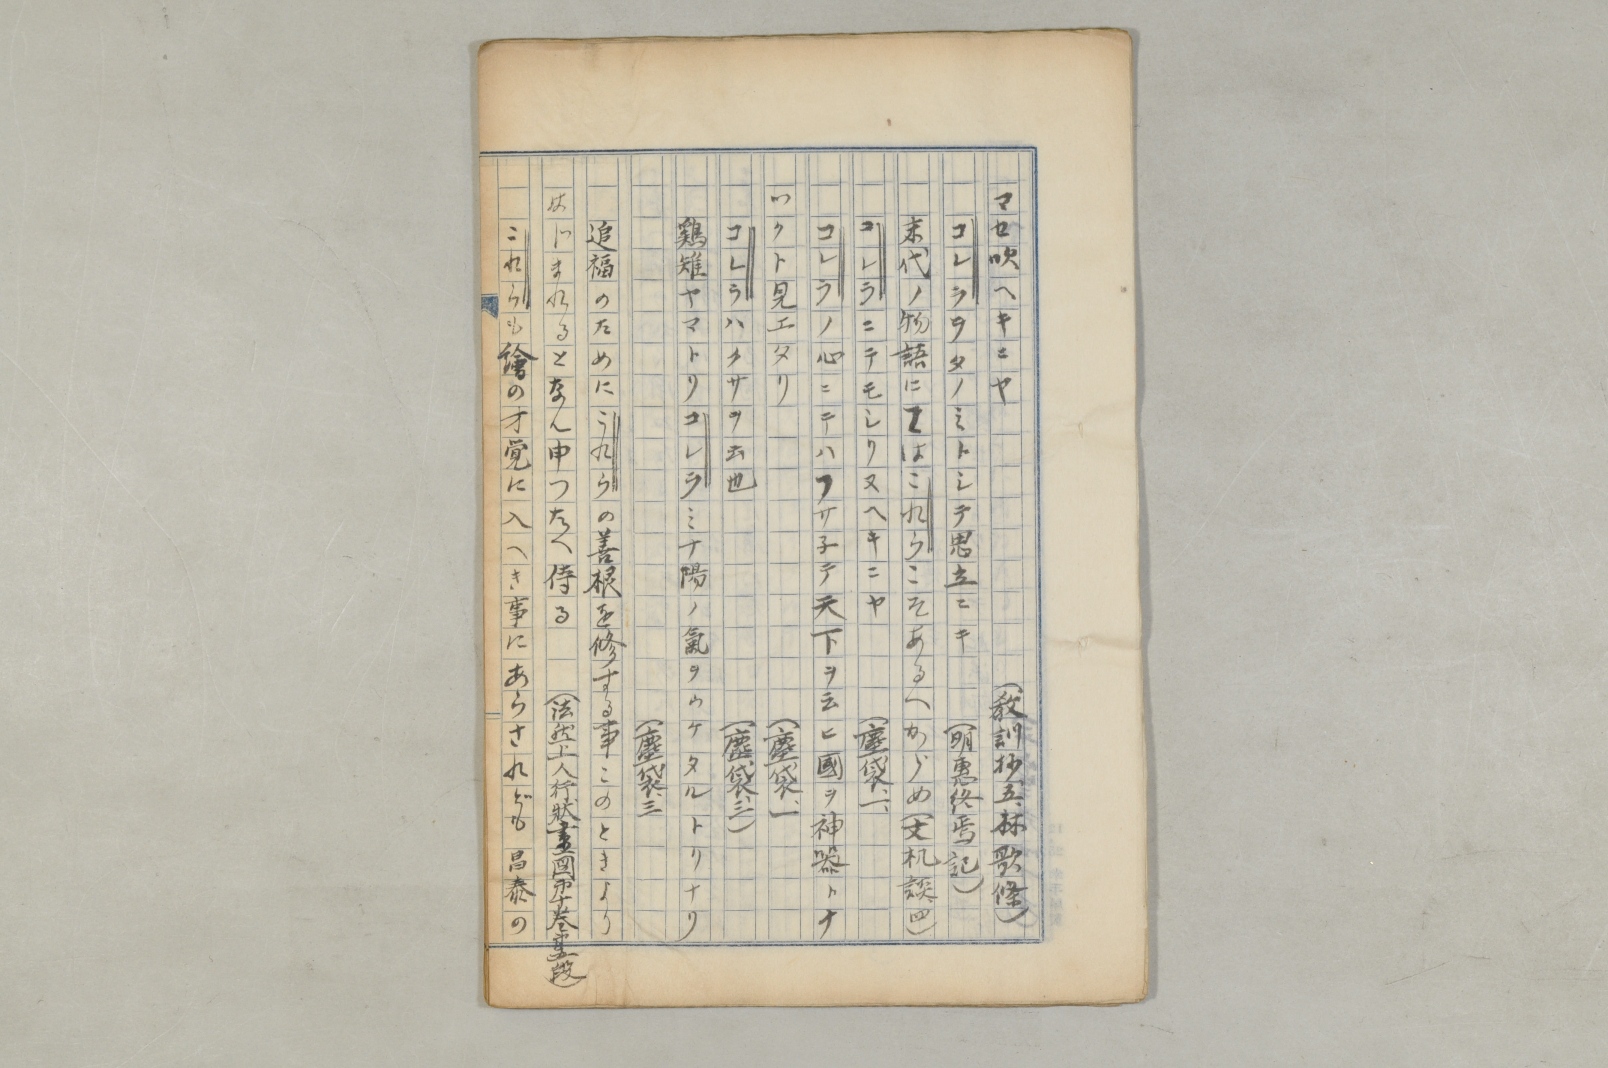 マセ吹ヘキニヤ（教訓抄五、林歌條）
コレラヲタノミトシテ思立ニキ（明惠終焉記）
末代ノ物語にてはこれらこそあるへからめ（文机談四）
コレラニテモシリヌヘキニヤ（塵袋、一、
コレラノ心ニテハフサ子テ天下ヲ云ヒ國ヲ神器トナ
ツクト見エタリ（塵袋、一
コレラハクサヲ云也（塵袋、三）
鷄雉ヤマトリコレラミナ陽ノ氣ヲウケタルトリナリ
（塵袋、三
追福のためにこれらの善根を修する事このときより
はじまれるとなん申つたへ侍る（法然上人行状畫圖第十巻第五段）
これらも繪の才覚に入へき事にあらされども昌泰の